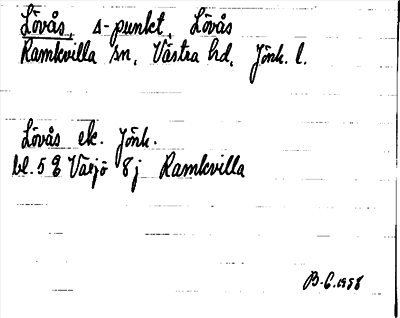 Lövås, s-punkt, Lövås
Ramkvilla sn, Västra hd, Jönk. l.
Lövås ek. Jönk.
bl. 5 E Växjö 8j Ramkvilla
B-C. 1958